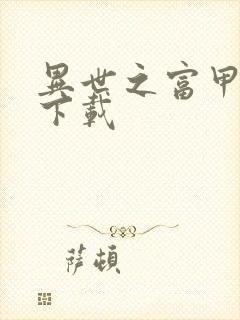 異世之富甲
下載
萨頓